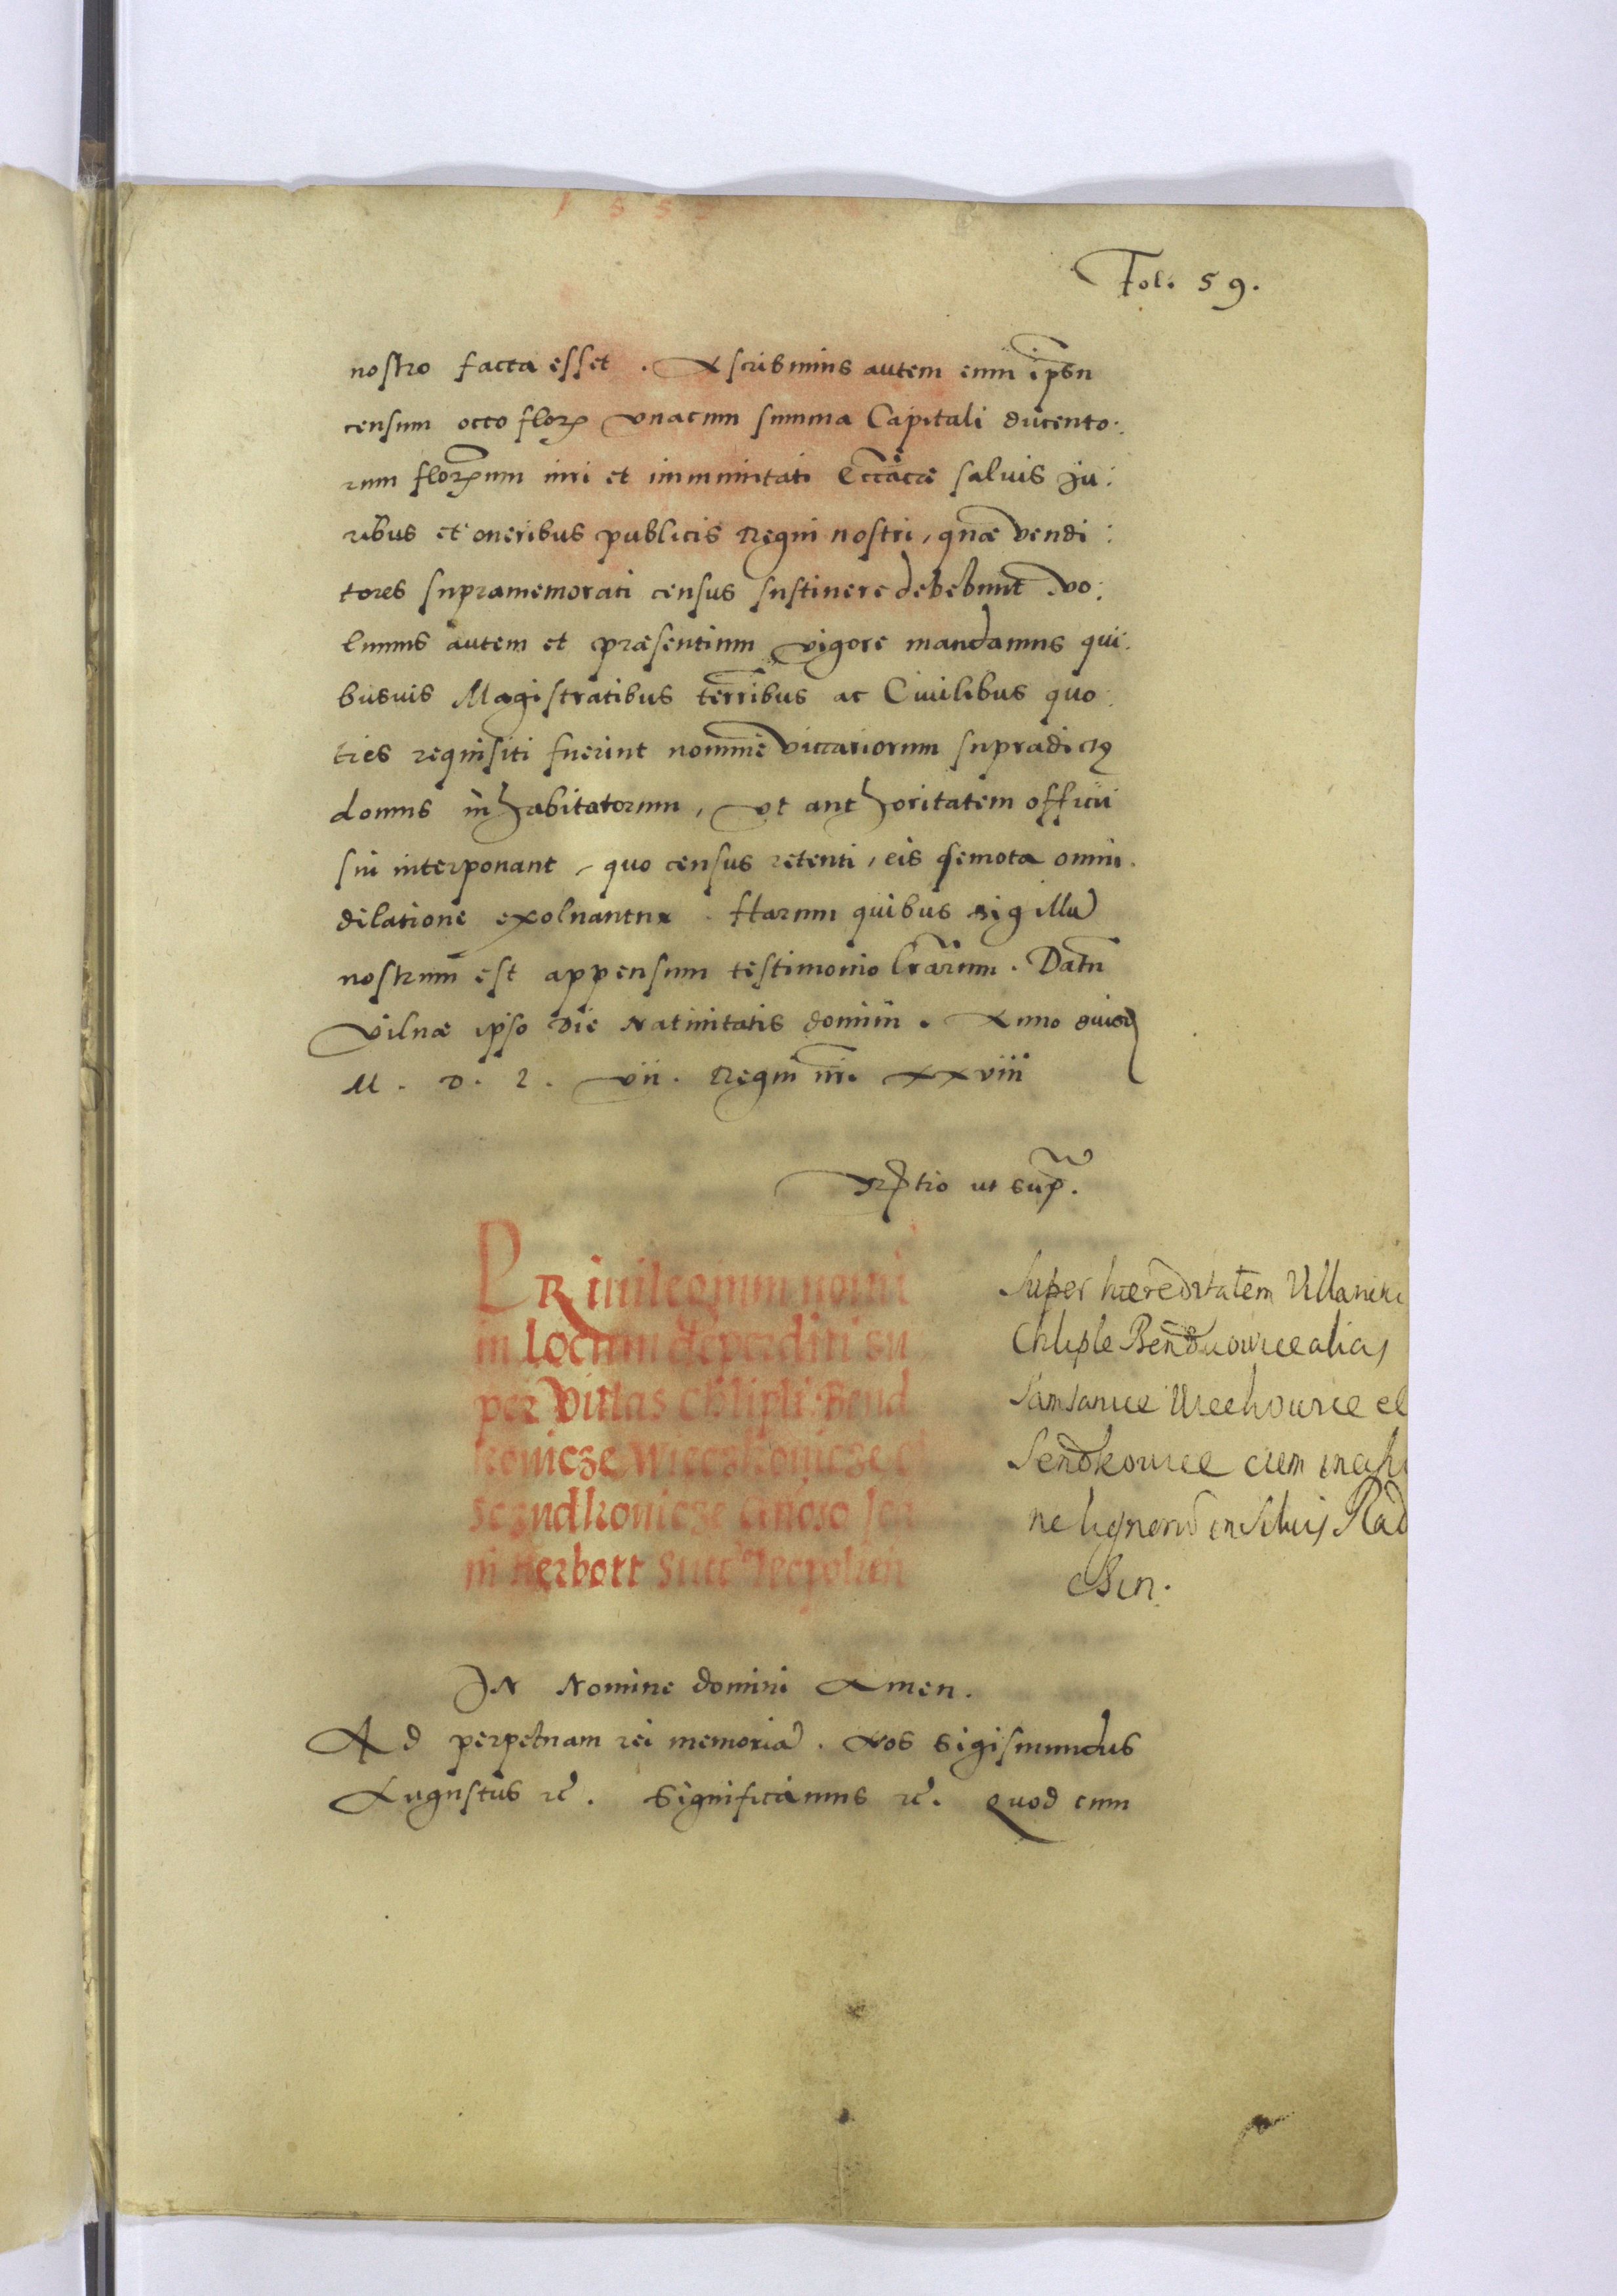 1 5 5
Fol. 59.
nostro facta esset. Ascribimus autem eum ip̃su
censum octo floreꝝ unacum summa Capitali ducento:
rum floꝝum iuri et immunitati Ecc̃iacæ salvis Ju:
ribus et oneribus publicis Regni nostri, quæ vendi:
tores supramemorati census sustinere debebunt Vo:
lumus autem et præsentium vigore mandamus qui:
busuis Magistratibus terr̃ibus ac Ciuilibus quo:
ties requisiti fuerint nomine viccariorum supradictę
domus inhabitatorum, ut authoritatem officii
sui interponant, quo census retenti, eis semota omni
dilatione exoluantur. Harum quibus sigillū
nostrum est appensum testimonio l̃rarum. Datū
Vilnæ ipso die Natiuitatis domini. Anno eiusd
M. D. L. vii. Regni nr̃i. xxviii
Rꝑtio ut sup̃.
PRiuilegium noui
in Locum deperditi su
per Villas Chlipli Bend
kouicze Wieczkouicze et
Sczndkouicze Gñoso
ni Herbort Succ̃ Leopolien
Super hæreditatem Villarum
Chliple Bendkowice alias
Samsanice Wieckowice et
Sendkowice cum
ne lignorũ in Siluis Rad
esien.
IN Nomine domini Amen.
Ad perpetuam rei memoriā. Nos Sigismundus
Augustus ꝛc̃. Significamus ꝛc̃. Quod cum